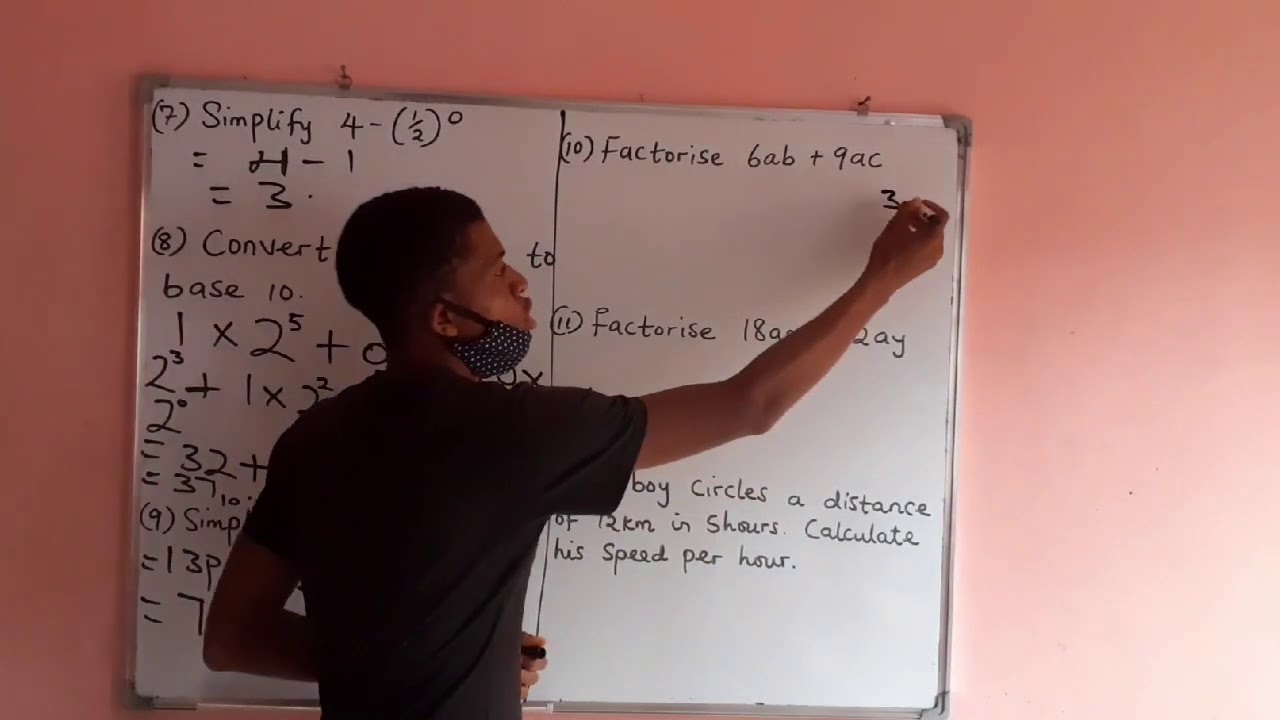 (7) Simplify 4 - (½)⁰
= 4 - 1
= 3.
(8) Convert to
base 10.
1 × 2⁵ + 0
2³ + 1 × 2²
2⁰
= 32 +
= 37₁₀.
(9) Simp
= 13p
= 7
(10) Factorise 6ab + 9ac
3
(11) Factorise 18a 2ay
boy circles a distance
of 72km in 5hours. Calculate
his speed per hour.